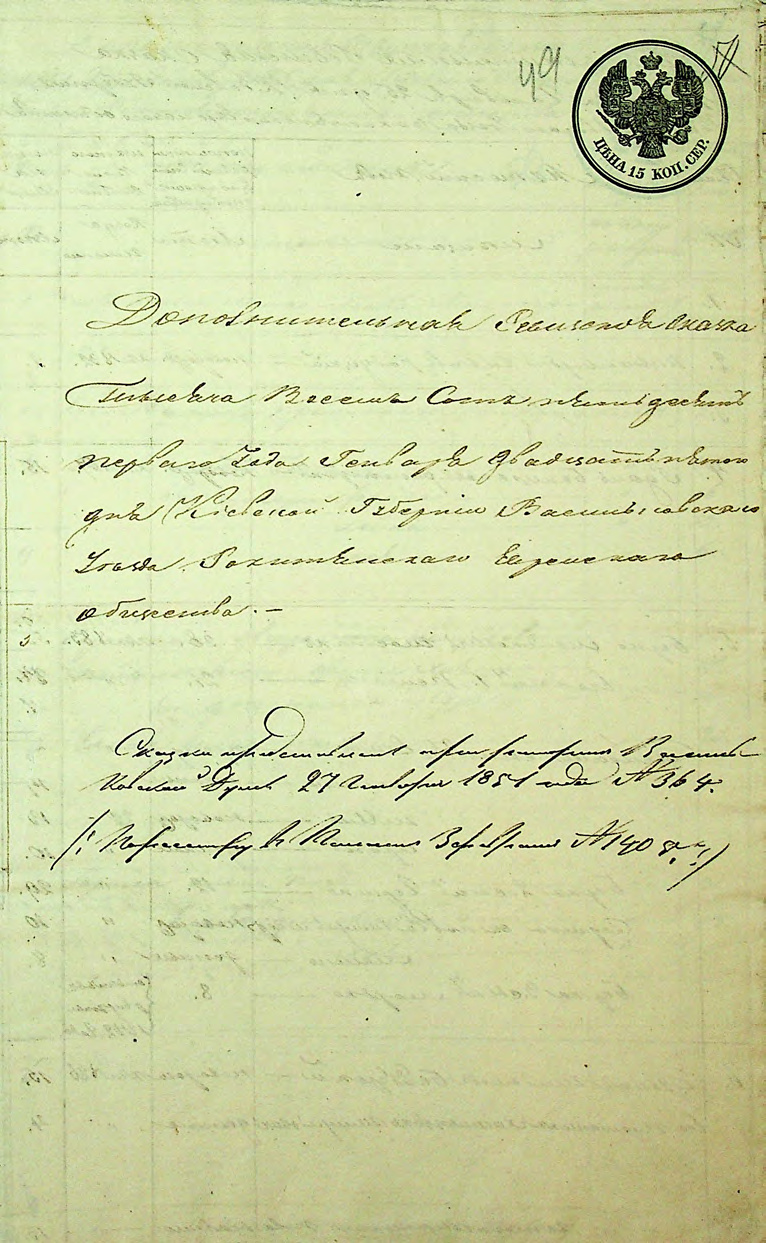 49
ЦѢНА 15 КОП. СЕР.
Дополнительная Ревизская сказка
Тысяча Восемь Сотъ пятьдесятъ
перваго Года Генваря двадцать пятого
дня Кіевской Губерніи Васильковскаго
Уезда Рокитянскаго Еврейскаго
общества. –
Сказки представлены при рапорте Василь-
ковской Думы 27 Генваря 1851 года № 364.
/: По реестру в № 1408. :/